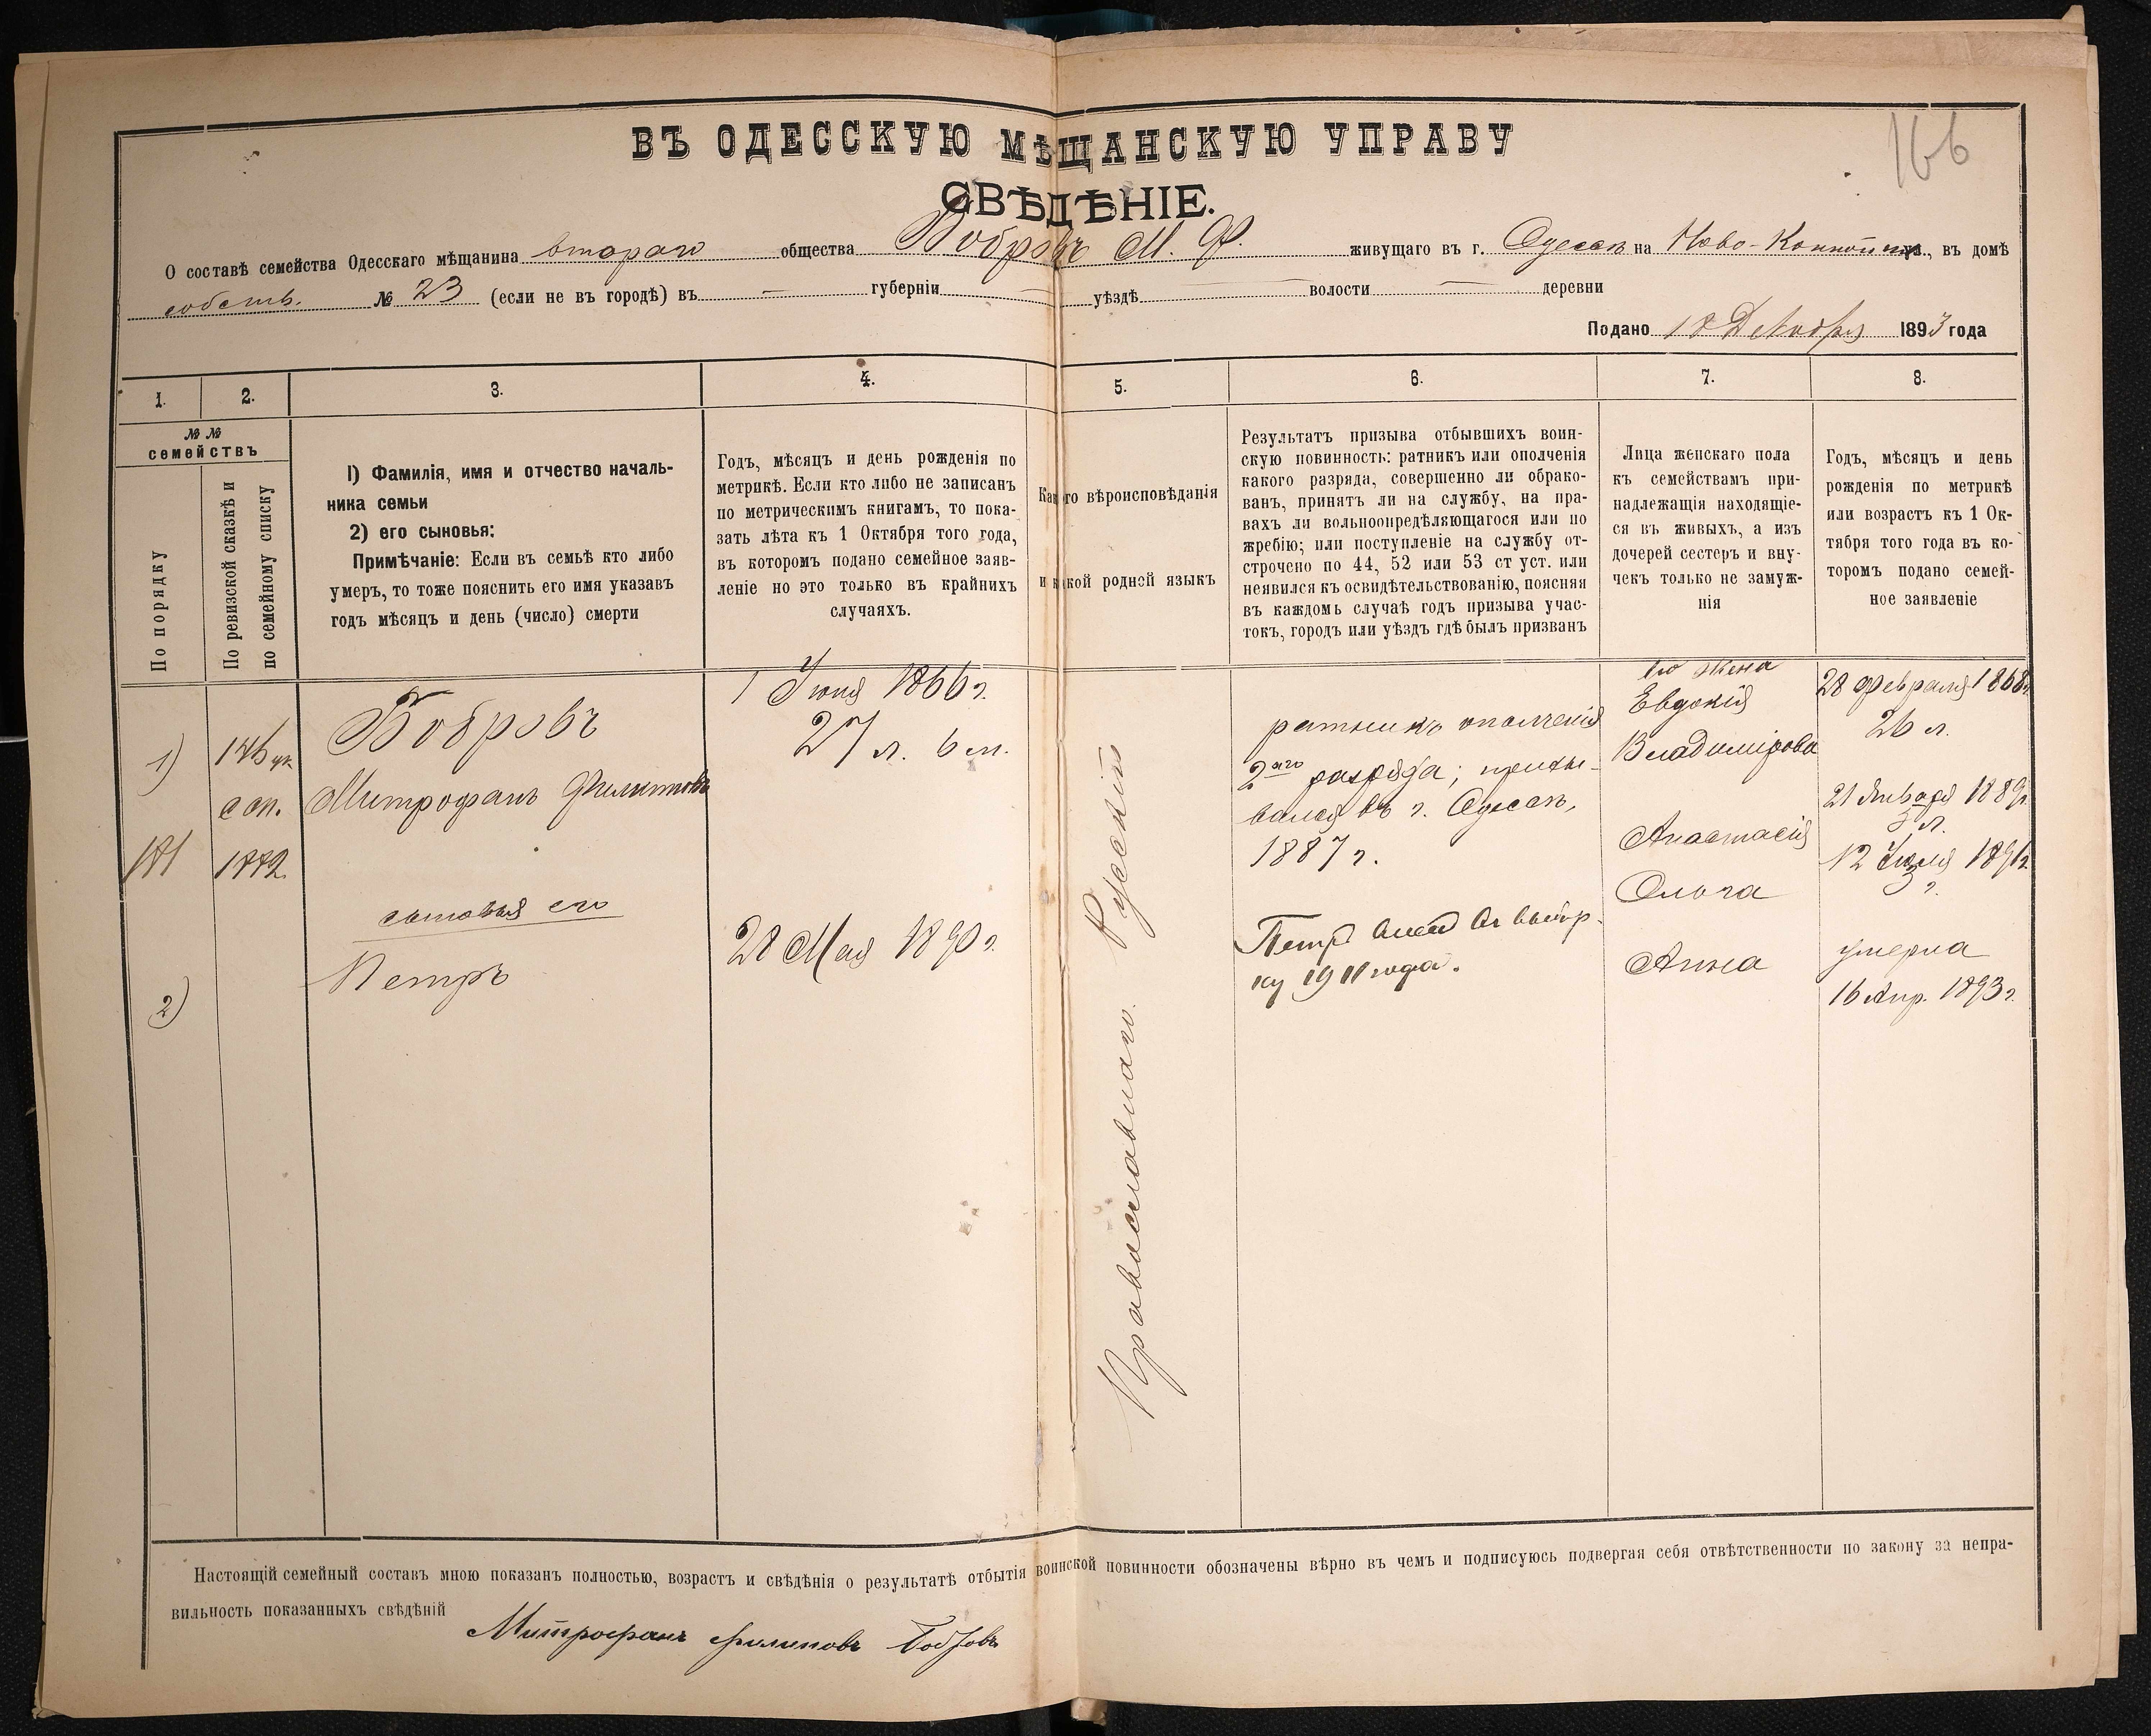 166
ВЪ ОДЕССКУЮ МѢЩАНСКУЮ УПРАВУ
СВѢДѢНІЕ.
О составѣ семейства Одесскаго мѣщанина втораго общества Бобровъ М. Ф. живущаго въ г. Одессѣ на Ново-Конной ул., въ домѣ
собств. № 23 (если не въ городѣ) въ — губерніи — уѣздѣ — волости — деревни
Подано 18 Декабря 1893 года
1. 2. 3. 4. 5. 6. 7. 8.
№ №
семействъ
По порядку
По ревизской сказкѣ и
по семейному списку
1) Фамилія, имя и отчество началь-
ника семьи
2) его сыновья:
Примѣчаніе: Если въ семьѣ кто либо
умеръ, то тоже пояснить его имя указавъ
годъ мѣсяцъ и день (число) смерти
Годъ, мѣсяцъ и день рожденія по
метрикѣ. Если кто либо не записанъ
по метрическимъ книгамъ, то пока-
зать лѣта къ 1 Октября того года,
въ которомъ подано семейное заяв-
леніе но это только въ крайнихъ
случаяхъ.
Какого вѣроисповѣданія
и какой родной языкъ
Результатъ призыва отбывшихъ воин-
скую повинность: ратникъ или ополченія
какого разряда, совершенно ли обрако-
ванъ, принятъ ли на службу, на пра-
вахъ ли вольноопредѣляющагося или по
жребію; или поступленіе на службу от-
строчено по 44, 52 или 53 ст уст. или
неявился къ освидѣтельствованію, поясняя
въ каждомъ случаѣ годъ призыва учас-
токъ, городъ или уѣздъ гдѣ былъ призванъ
Лица женскаго пола
къ семействамъ при-
надлежащія находящіе-
ся въ живыхъ, а изъ
дочерей сестеръ и вну-
чекъ только не замуж-
нія
Годъ, мѣсяцъ и день
рожденія по метрикѣ
или возрастъ къ 1 Ок-
тября того года въ ко-
торомъ подано семей-
ное заявленіе
1)
181
сп.
1882
Бобровъ
Митрофанъ Филиповъ
1 Июня 1866 г.
27 л. 6 м.
сыновья его
2)
Петръ
28 Мая 1890 г.
Православнаго. Русскій
ратникъ ополченія
2аго разряда; призы-
вался въ г. Одессѣ,
1887 г.
Петръ
1911 года.
его жена
Евдокія
Владимірова
Анастасія
Ольга
Анна
28 Февраля 1868 г.
26 л.
21 Января 1889 г.
12 Июля 1891 г.
умерла
16 Апр. 1893 г.
Настоящій семейный составъ мною показанъ полностью, возрастъ и свѣдѣнія о результатѣ отбытія воинской повинности обозначены вѣрно въ чемъ и подписуюсь подвергая себя отвѣтственности по закону за непра-
вильность показанныхъ свѣдѣній
Митрофанъ Филиповъ Бобровъ